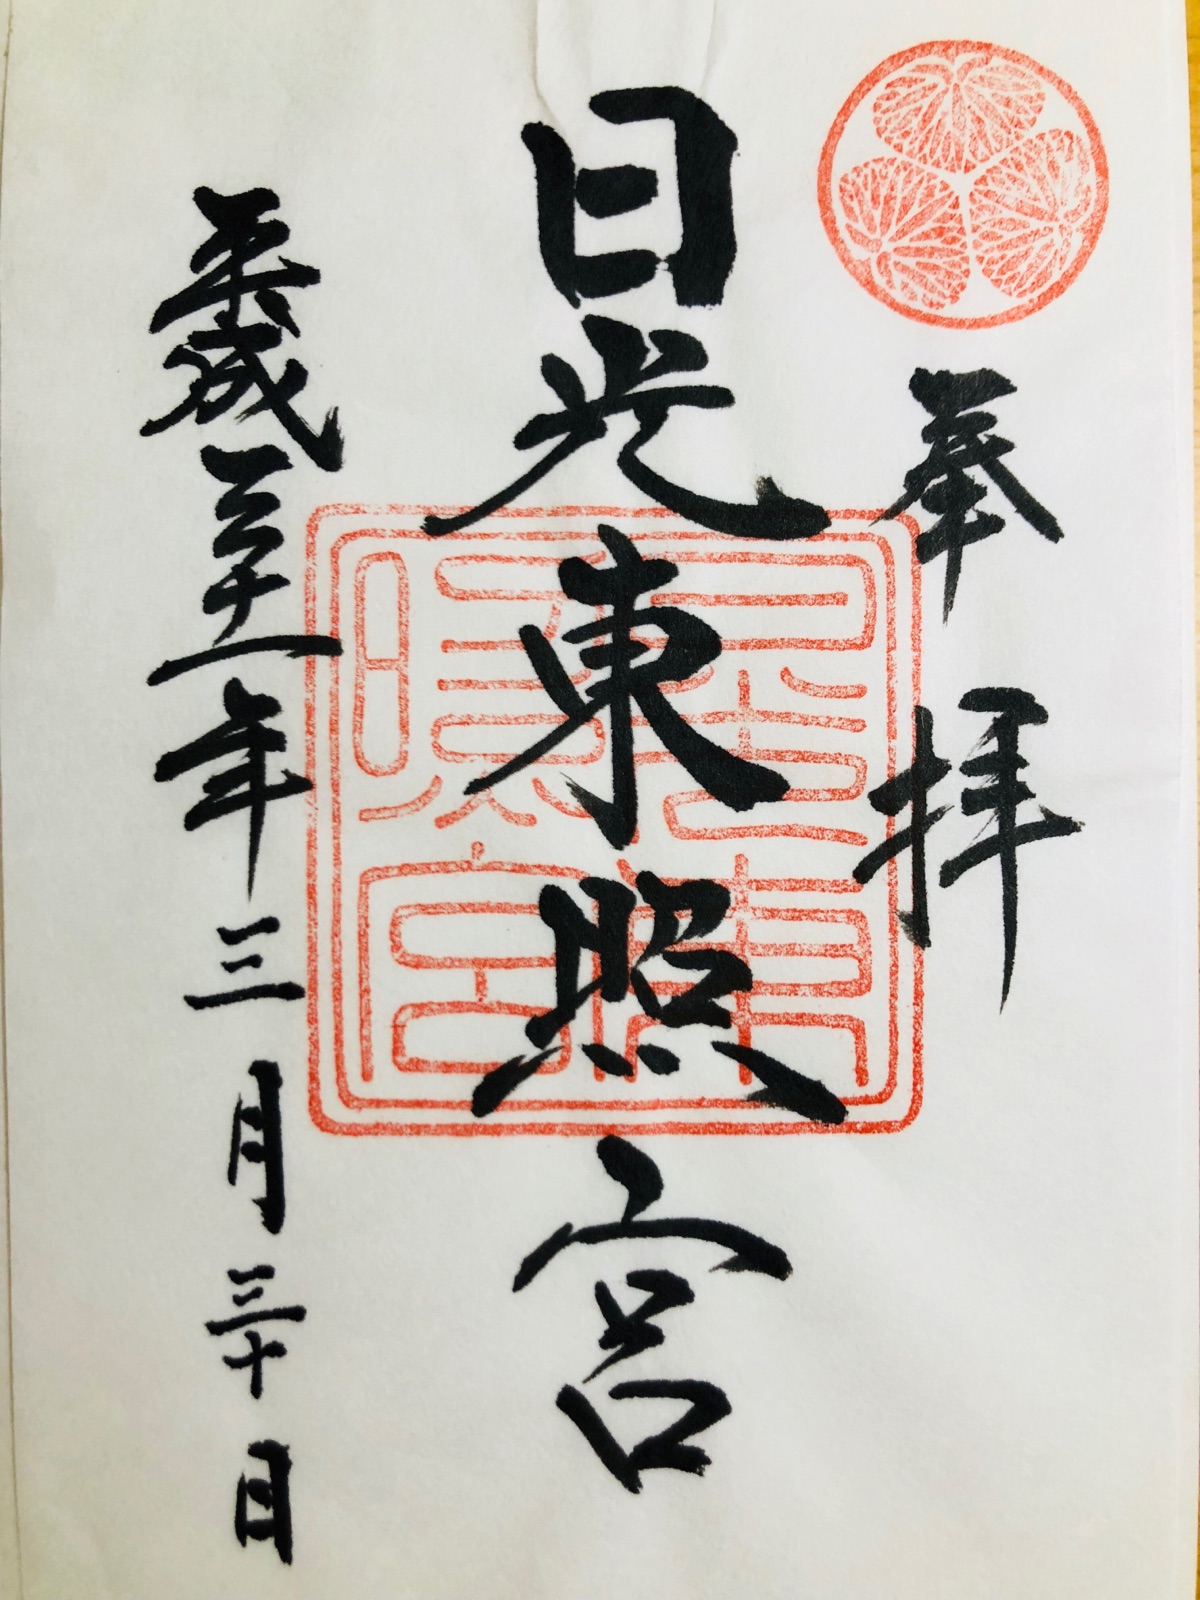 奉拝
日光東照宮
平成三十一年三月三十日